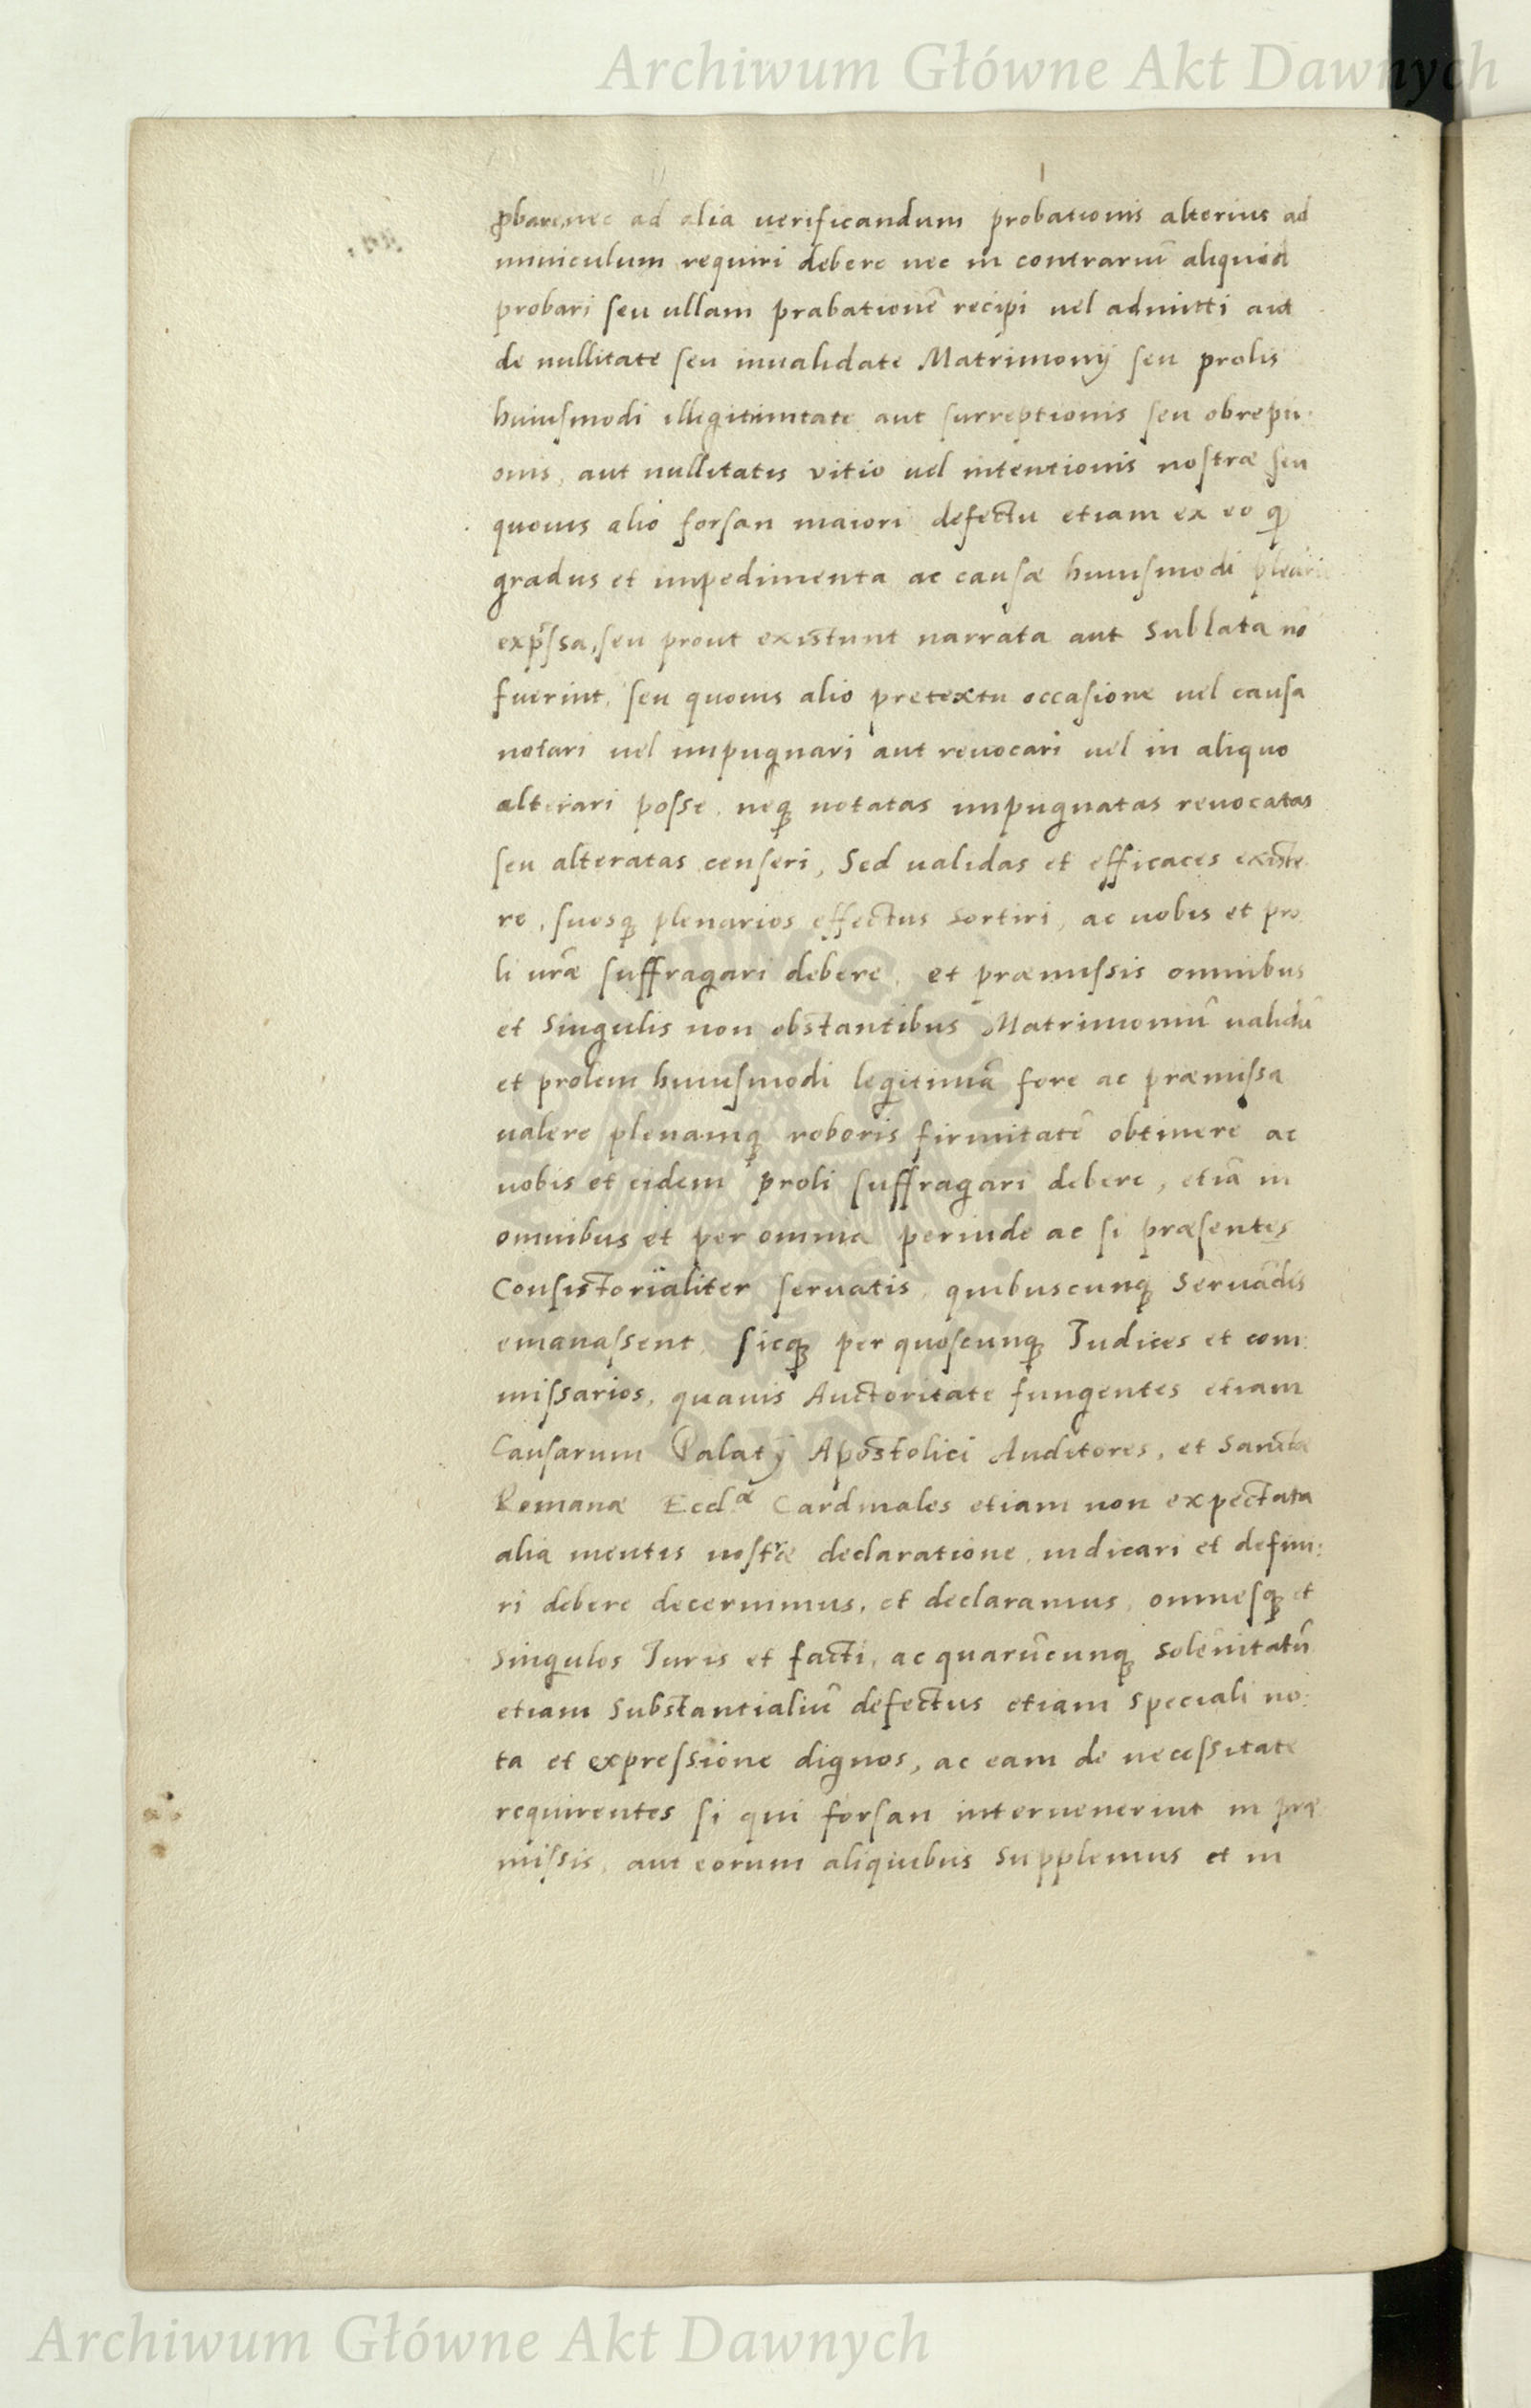 Archiwum Główne Akt Dawnych
ꝓbare, nec ad alia uerificandum probationis alterius ad
miniculum requiri debere nec in contrariũ aliquid
probari seu ullam prabationẽ recipi uel admitti aut
de nullitate seu inualidate Matrimonij seu prolis
huiusmodi illegitimitate aut surreptionis seu obrepti:
onis, aut nullitatis vitio uel intentionis nostræ seu
quouis alio forsan maiori defectu etiam ex eo ꝙ
gradus et impedimenta ac causæ huiusmodi
exp̃ssa, seu prout existunt narrata aut sublata nõ
fuerint, seu quouis alio pretextu occasione uel causa
notari uel impugnari aut reuocari uel in aliquo
alterari posse, neq; notatas impugnatas reuocatas
seu alteratas censeri, Sed ualidas et efficaces existe
re, suosq; plenarios effectus sortiri, ac uobis et pro
li ur̃æ suffragari debere, et præmissis omnibus
et Singulis non obstantibus Matrimoniũ ualidũ
et prolem huiusmodi legitimã fore ac præmissa
ualere plenamq; roboris firmitatẽ obtinere ac
uobis et eidem proli suffragari debere, etiã in
omnibus et per omnia perinde ac si præsentes
Consistorialiter seruatis, quibuscunq; Seruãdis
emanassent, sicq; per quoscunq; Iudices et com:
missarios, quauis Auctoritate fungentes etiam
Causarum Palatij Apostolici Auditores, et Sanctæ
Romanæ Eccl.æ Cardinales etiam non expectata
alia mentis nostræ declaratione, iudicari et defini:
ri debere decernimus, et declaramus, omnesq; et
Singulos Iuris et facti, ac quarũcunq; Solẽnitatũ
etiam Substantialiũ defectus etiam speciali no:
ta et expressione dignos, ac eam de necessitate
requirentes si qui forsan interuenerint in præ
missis, aut eorum aliquibus Supplemus et in
Archiwum Główne Akt Dawnych